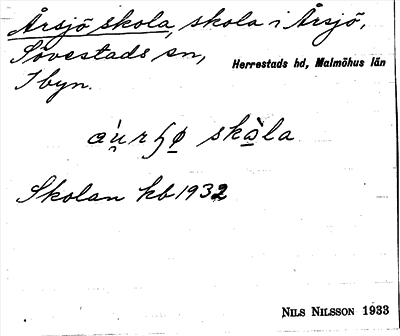 Årsjö skola, skola i Årsjö,
Sövestads sn,
Herrestads hd, Malmöhus län
I byn.
skàla
Skolan kb 1932
NILS NILSSON 1933